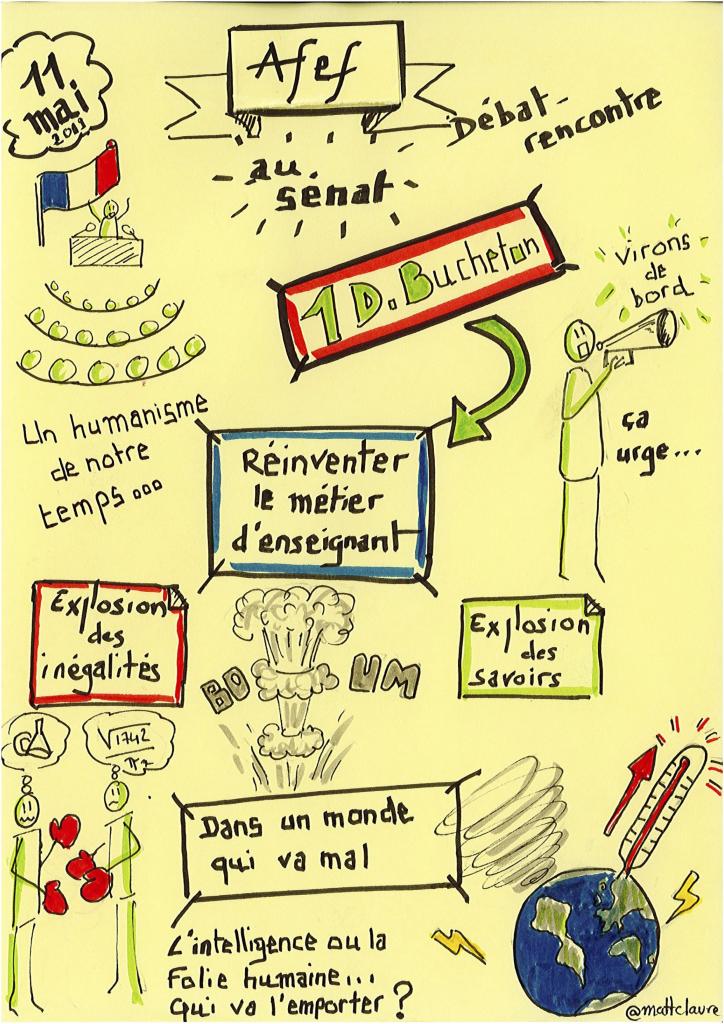 11
mai
2013
Afef
Débat-
rencontre
au
sénat
1 D. Bucheton
virons
de
bord
ça
urge...
Un humanisme
de notre
temps...
Réinventer
le métier
d'enseignant
Explosion
des
inégalités
BOUM
Explosion
des
savoirs
√1742
Dans un monde
qui va mal
L'intelligence ou la
Folie humaine...
qui va l'emporter ?
@mattclaure